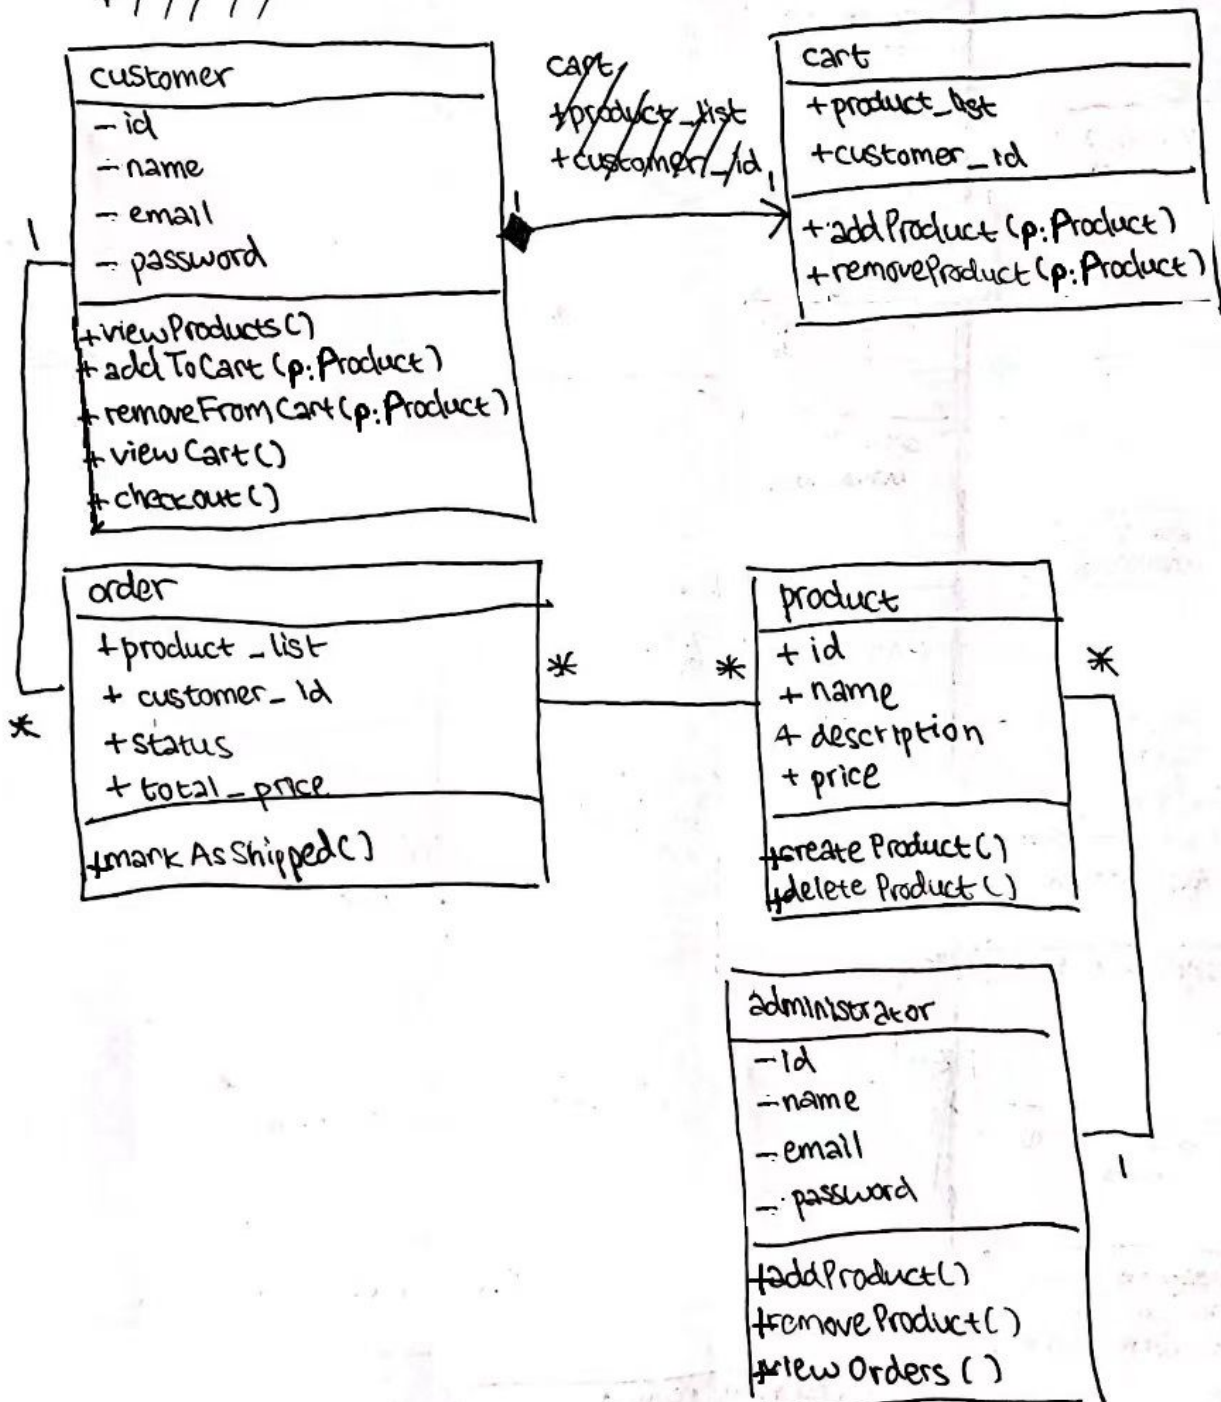 customer
- id
- name
- email
- password
+ viewProducts()
+ addToCart(p:Product)
+ removeFromCart(p:Product)
+ viewCart()
+ checkout()
1
*
cart
+product_list
+customer_id
1
1
cart
+product_list
+customer_id
+addProduct(p:Product)
+removeProduct(p:Product)
order
+product_list
+ customer_id
+status
+ total_price
+markAsShipped()
*
*
product
+ id
+ name
+ description
+ price
+createProduct()
+deleteProduct()
*
1
administrator
-id
-name
-email
-password
+addProduct()
+removeProduct()
+viewOrders()